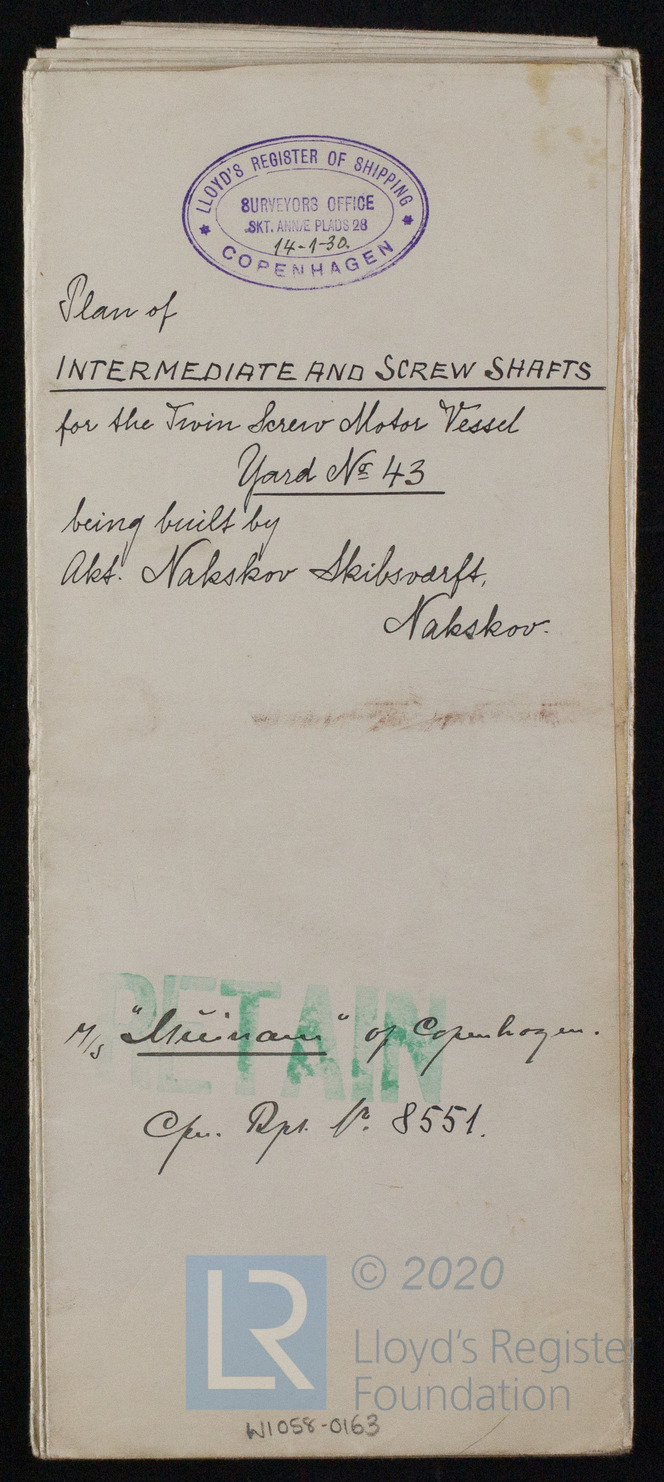 LLOYD'S REGISTER OF SHIPPING
SURVEYORS OFFICE
SKT. ANNÆ PLADS 28
14-1-30.
COPENHAGEN
Plan of
INTERMEDIATE AND SCREW SHAFTS
for the Twin Screw Motor Vessel
Yard No 43
being built by
Akt. Nakskov Skibsværft,
Nakskov.
RETAIN
M/S " " of Copenhagen.
Cpn. Rpt. No. 8551.
LR
© 2020
Lloyd's Register
Foundation
W1058-0163